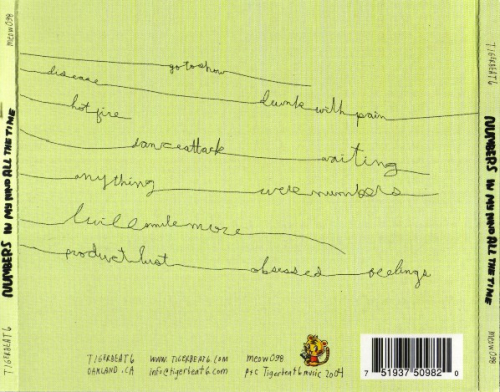 TIGERBEAT6
meow098
go to show
disease
drunk with pain
hot fire
dance attack
waiting
anything
we're numbers
I will smile more
product lust
obsessed
feelings
NUMBERS IN MY MIND ALL THE TIME
NUMBERS IN MY MIND ALL THE TIME
meow098
TIGERBEAT6
TIGERBEAT6 www.TIGERBEAT6.COM meow098
OAKLAND.CA info@tigerbeat6.com p+c Tigerbeat6 music 2004
7 51937 50982 0
meow098
TIGERBEAT6